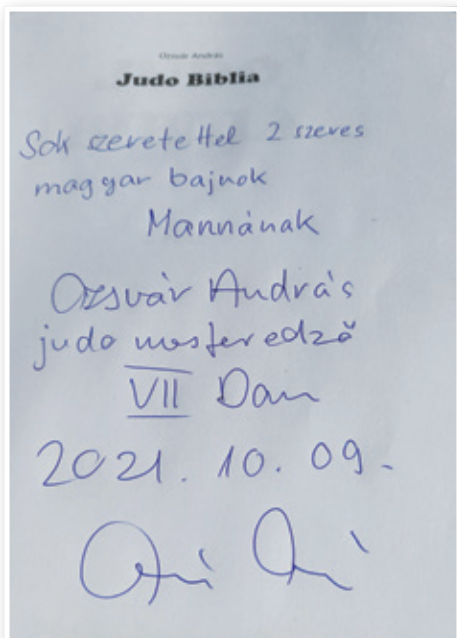 Ozsvár András
Judo Biblia
Sok szeretettel 2 szeres
magyar bajnok
Mannának
Ozsvár András
judo mesteredző
VII Dan
2021. 10. 09.